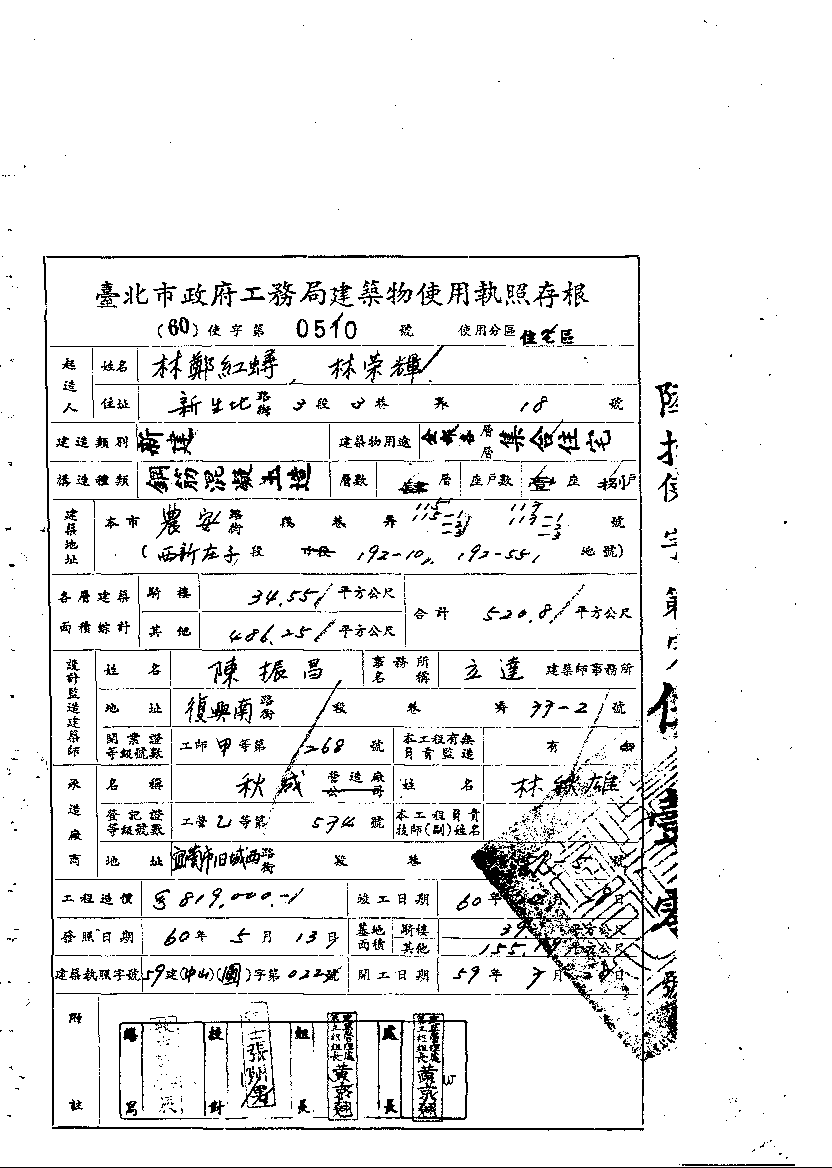 臺北市政府工務局建築物使用執照存根
(60)使字第 0510 號 使用分區 住宅區
起造人 姓名 林鄭紅蟳、林榮輝
住址 新生北路街 3段 3巷 弄 18 號
建造類別 新建 建築物用途 層層 集合住宅
構造種類 鋼筋混凝土造 層數 肆 層 座戶數 壹 座 捌 戶
建築地址 本市 農安路街 段 巷 弄 115 115-1 -2 -3 117 117-1 -2 -3 號
(西新庄子段 小段 192-10, 192-551 地號)
各層建築面積綜計 騎樓 34.55 平方公尺 合計 520.8 平方公尺
其他 486.25 平方公尺
設計監造建築師 姓名 陳振昌 事務所名稱 立達 建築師事務所
地址 復興南路街 段 巷 弄 33-2 號
開業證等級號數 工師甲等第 1268 號 本工程有無負責監造 有
承造廠商 名稱 秋成 營造廠公司 姓名 林欽雄
登記證等級號數 工營乙等第 574 號 本工程負責技師(副)姓名
地址 宜蘭市旧城西路街 段 巷 號
工程造價 $819,000.- 竣工日期 60年 月 日
發照日期 60年 5月 13日 基地面積 騎樓 39 平方公尺
其他 155. 平方公尺
建築執照字號 59建(中山)(圓)字第022號 開工日期 59年 月 日
附註
繕寫 校對 組長 處長
黃 黃
陸拾使字第